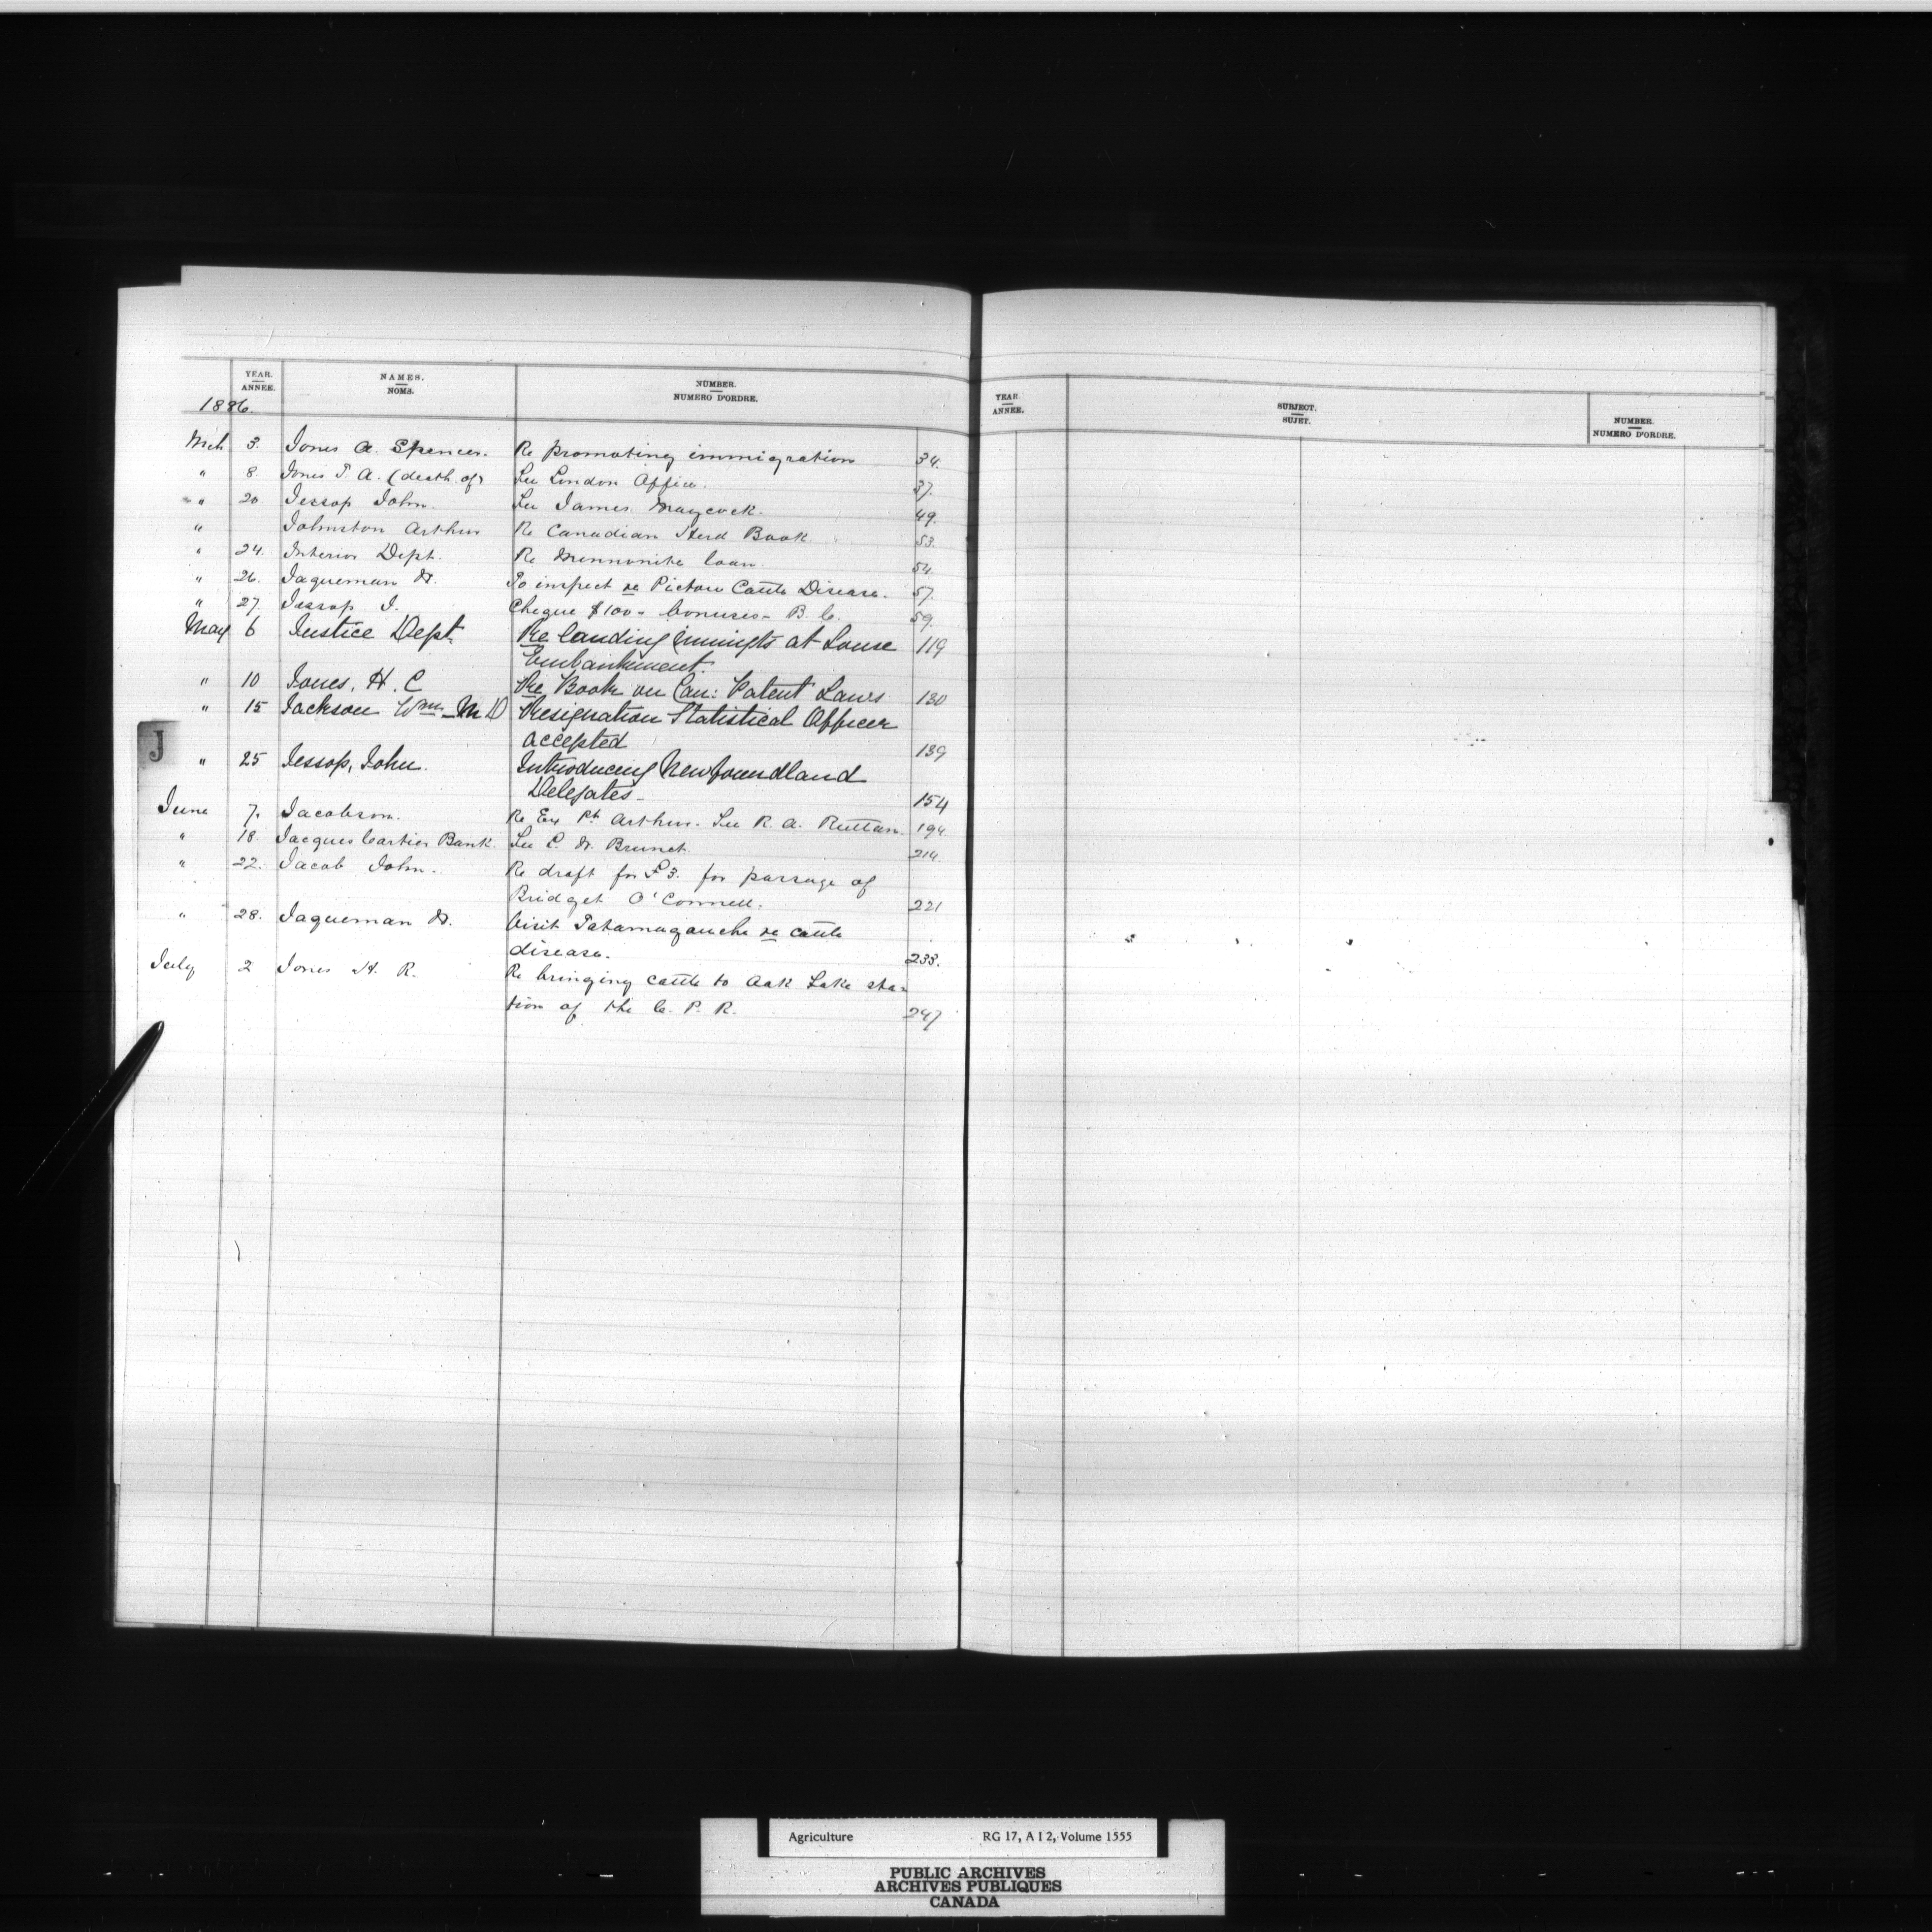 YEAR. NAMES. NUMBER.
ANNÉE. NOMS. NUMERO D'ORDRE.
1886.
Mch 3. Jones A. Spencer. Re promoting immigration 34.
" 8. Jones T. A. (death of) See London Office. 37.
" 20. Jessop John. See James Maycock. 49.
" Johnston Arthur Re Canadian Herd Book 53.
" 24. Interior Dept. Re Mennonite loan. 54.
" 26. Jaqueman Dr. To inspect re Pictou Cattle Disease. 57.
" 27. Jessop J. Cheque $100 - bonuses - B. C. 59.
May 6 Justice Dept. Re landing immigts at Louse 119
Embankment.
" 10 Jones, H. C Re Book on Can: Patent Laws 130
" 15 Jackson Wm. M D Resignation Statistical Officer
accepted 139
J
" 25 Jessop, John. Introducing Newfoundland
Delegates - 154
June 7. Jacobson. Re Ex Pt. Arthur. See R. A. Ruttan. 194
" 18. Jacques Cartier Bank. See L. D. Brunet. 214.
" 22. Jacob John. Re draft for £3. for passage of
Bridget O'Connell. 221
" 28. Jaqueman Dr. Visit Tatamagouche re cattle
disease. 233.
July 2 Jones H. R. Re bringing cattle to Oak Lake sta-
tion of the C. P. R. 247
YEAR. SUBJECT. NUMBER.
ANNÉE. SUJET. NUMERO D'ORDRE.
Agriculture RG 17, A I 2, Volume 1555
PUBLIC ARCHIVES
ARCHIVES PUBLIQUES
CANADA